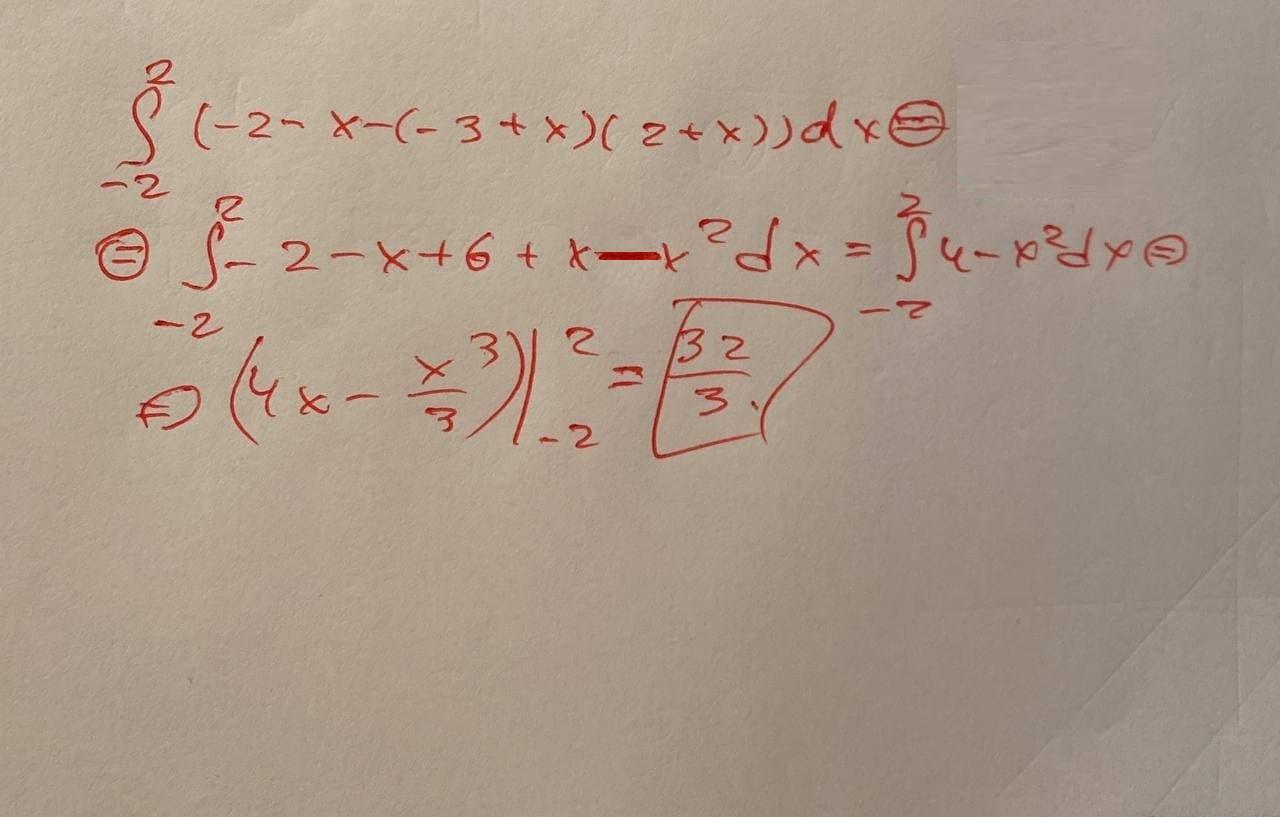 ∫_{-2}^{2} (-2-x-(-3+x)(2+x))dx ⊜
⊜ ∫_{-2}^{2} -2-x+6+x-x²dx = ∫_{-2}^{2} 4-x²dx ⊜
⊜ (4x-x³/3)|_{-2}^{2} = 32/3.